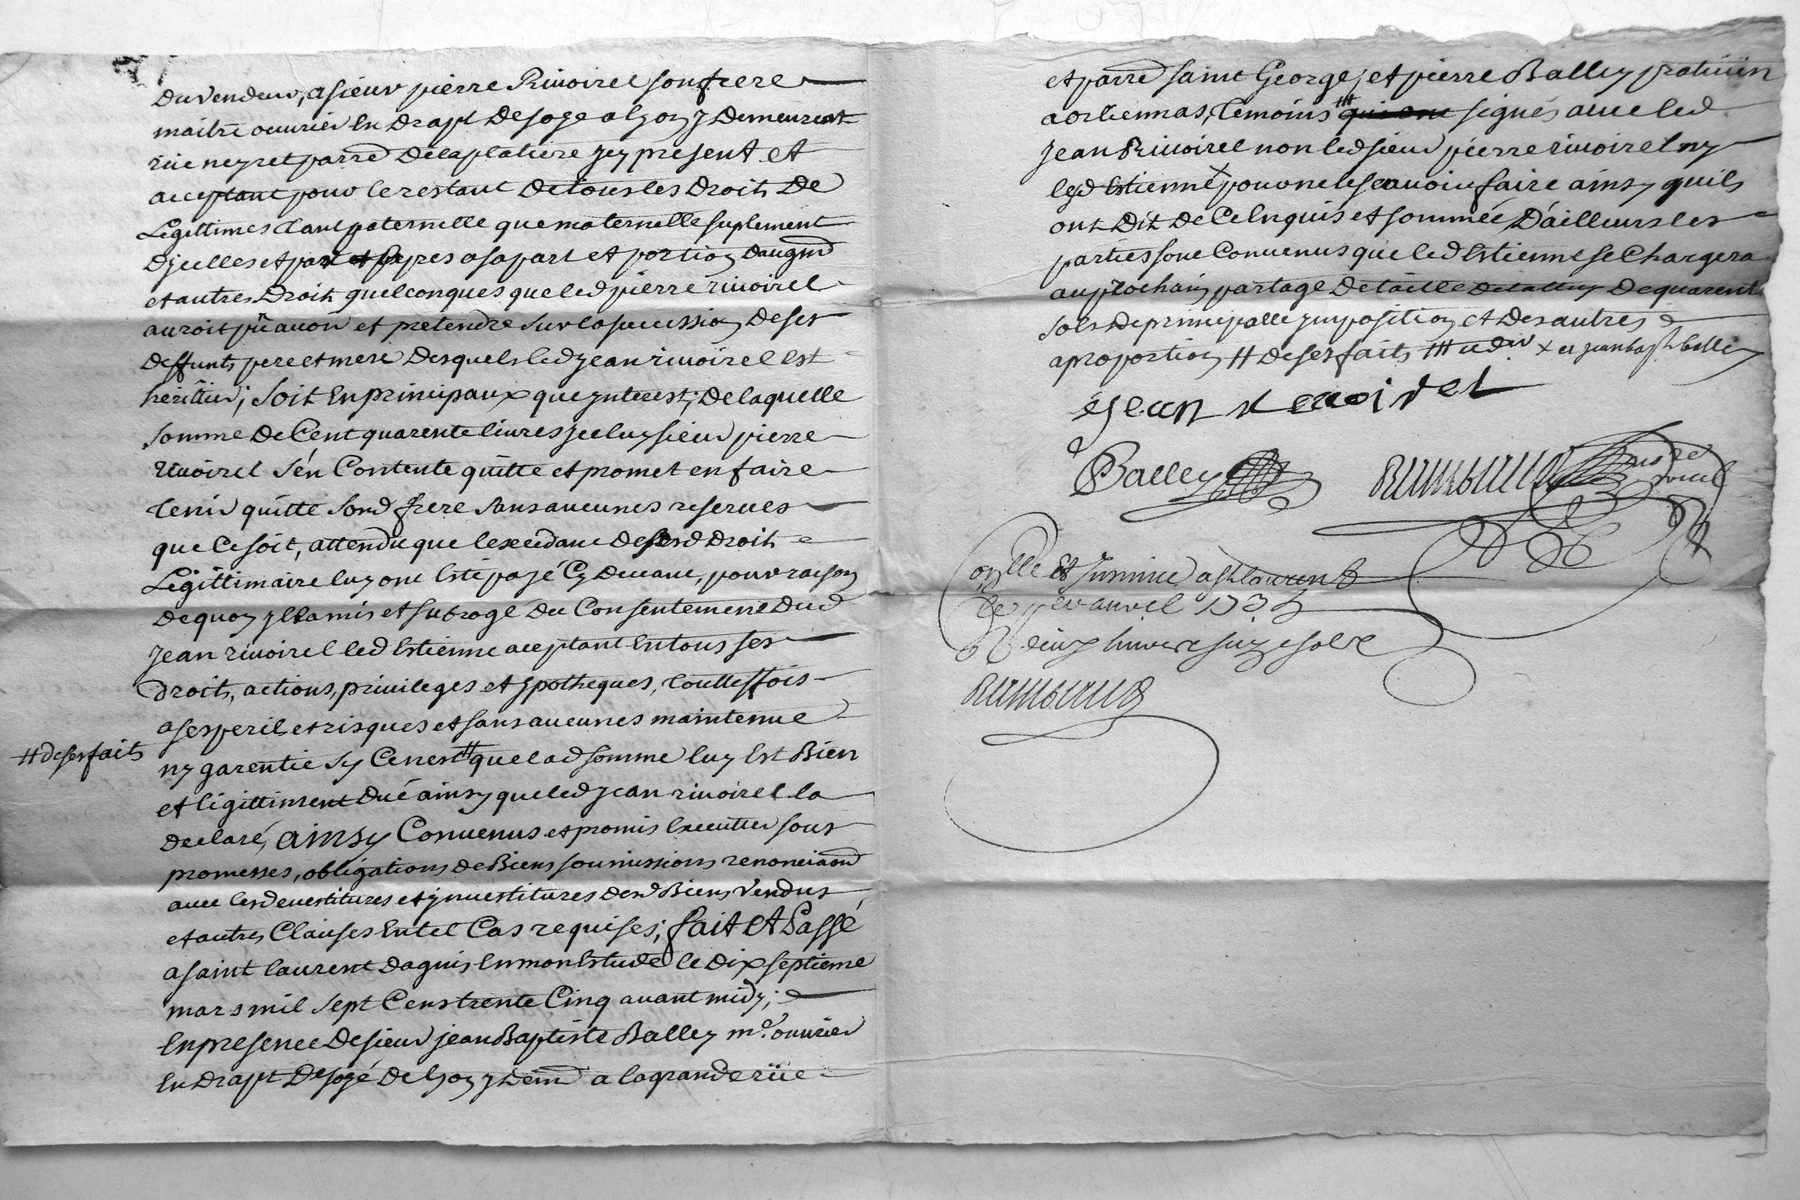 du vendeur, a sieur pierre Rivoirel son frere
maitre ouvrier en drapt de soye a lyon y demeurent
rüe neyret parr.d de la platiere jcy present et
acceptant pour le restant de tous les droits de
Legittimes tant paternelle que maternelle suplement
djcelles et part et pres a sa part et portion daugmd
et autres droits quelconques que led pierre rivoirel
auroit pû avoir et pretendre sur la sucession de ses
deffunts pere et mere desquels led jean rivoirel est
heritier; soit en principaux que ynterest; de laquelle
somme de Cent quarente livres jceluy sieur pierre
rivoirel s'en Contente quitte et promet en faire
tenir quitte sond frere sans aucunes reserves
que Ce soit, attendu que lexcedant de sesd droits
Legittimaire luy ont esté payé Cy devant, pour raison
de quoy yl a mis et subrogé du Consentement dud
jean rivoirel led Estienne aceptant en tous ses
droits, actions, privileges et ypotheques, touttesfois
a ses peril et risques et sans aucunes maintenue
# de ses faits
ny garentie sy Ce nest # que lad somme luy Est Bien
et ligittiment düé ainsy que led jean rivoirel la
declaré, ainsy Convenus et promis Executer sous
promesses, obligations de Biens soumissions renonciaond
avec les devestitures et ynvestitures desd Biens vendus
et autres Clauses En tel Cas requises; fait et Passé
a saint laurent dagnis En mon Estude le dix septieme
mars mil sept Cens trente Cinq avant midy;
En presence de sieur jean Baptiste Balley m.e ouvrier
En drapt de soyé de lyon y demd a la grande rüe
et parr.d saint George, et pierre Balley praticien
a ortiennas, temoins ### qui ont signés avec led
jean Rivoirel non led sieur pierre rivoirel ny
led Estienne x pour ne le scavoir faire ainsy quils
ont dit de Ce Enquis et sommée D'ailleurs les
parties sont Convenus que led Estienne se Chargera
au prochain partage de taille de quarente
sols de principalle ymposition et des autres
a proportion # de ses faits ### x et jean bapt balley
Jean Rivoirel
Balley
notre
royal
Con.lle et a st laurent
le p.er avril 1735